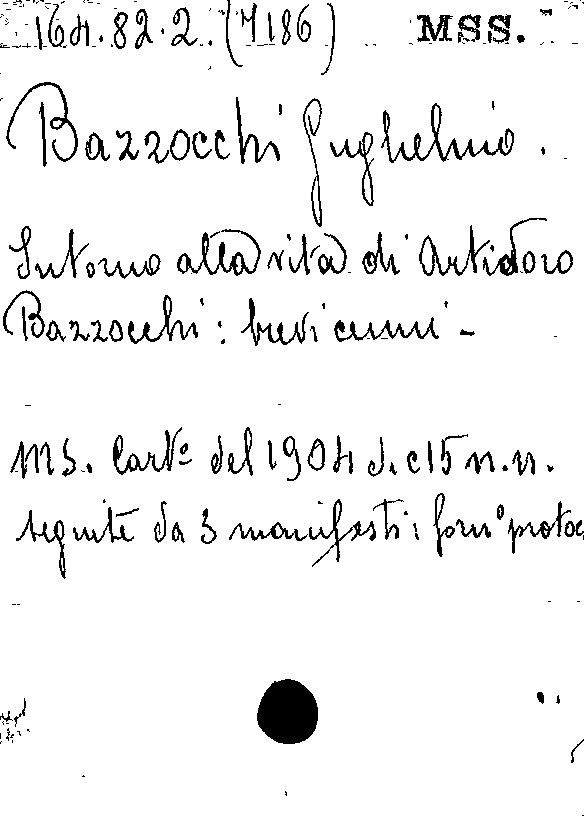 164.82.2. (7186) MSS.
Bazzocchi Guglielmo.
Intorno alla vita di Artidoro
Bazzocchi: brevi cenni -
MS. Cart.º del 1904 di c 15 n.n.
seguite da 3 manifesti: form.º protoc